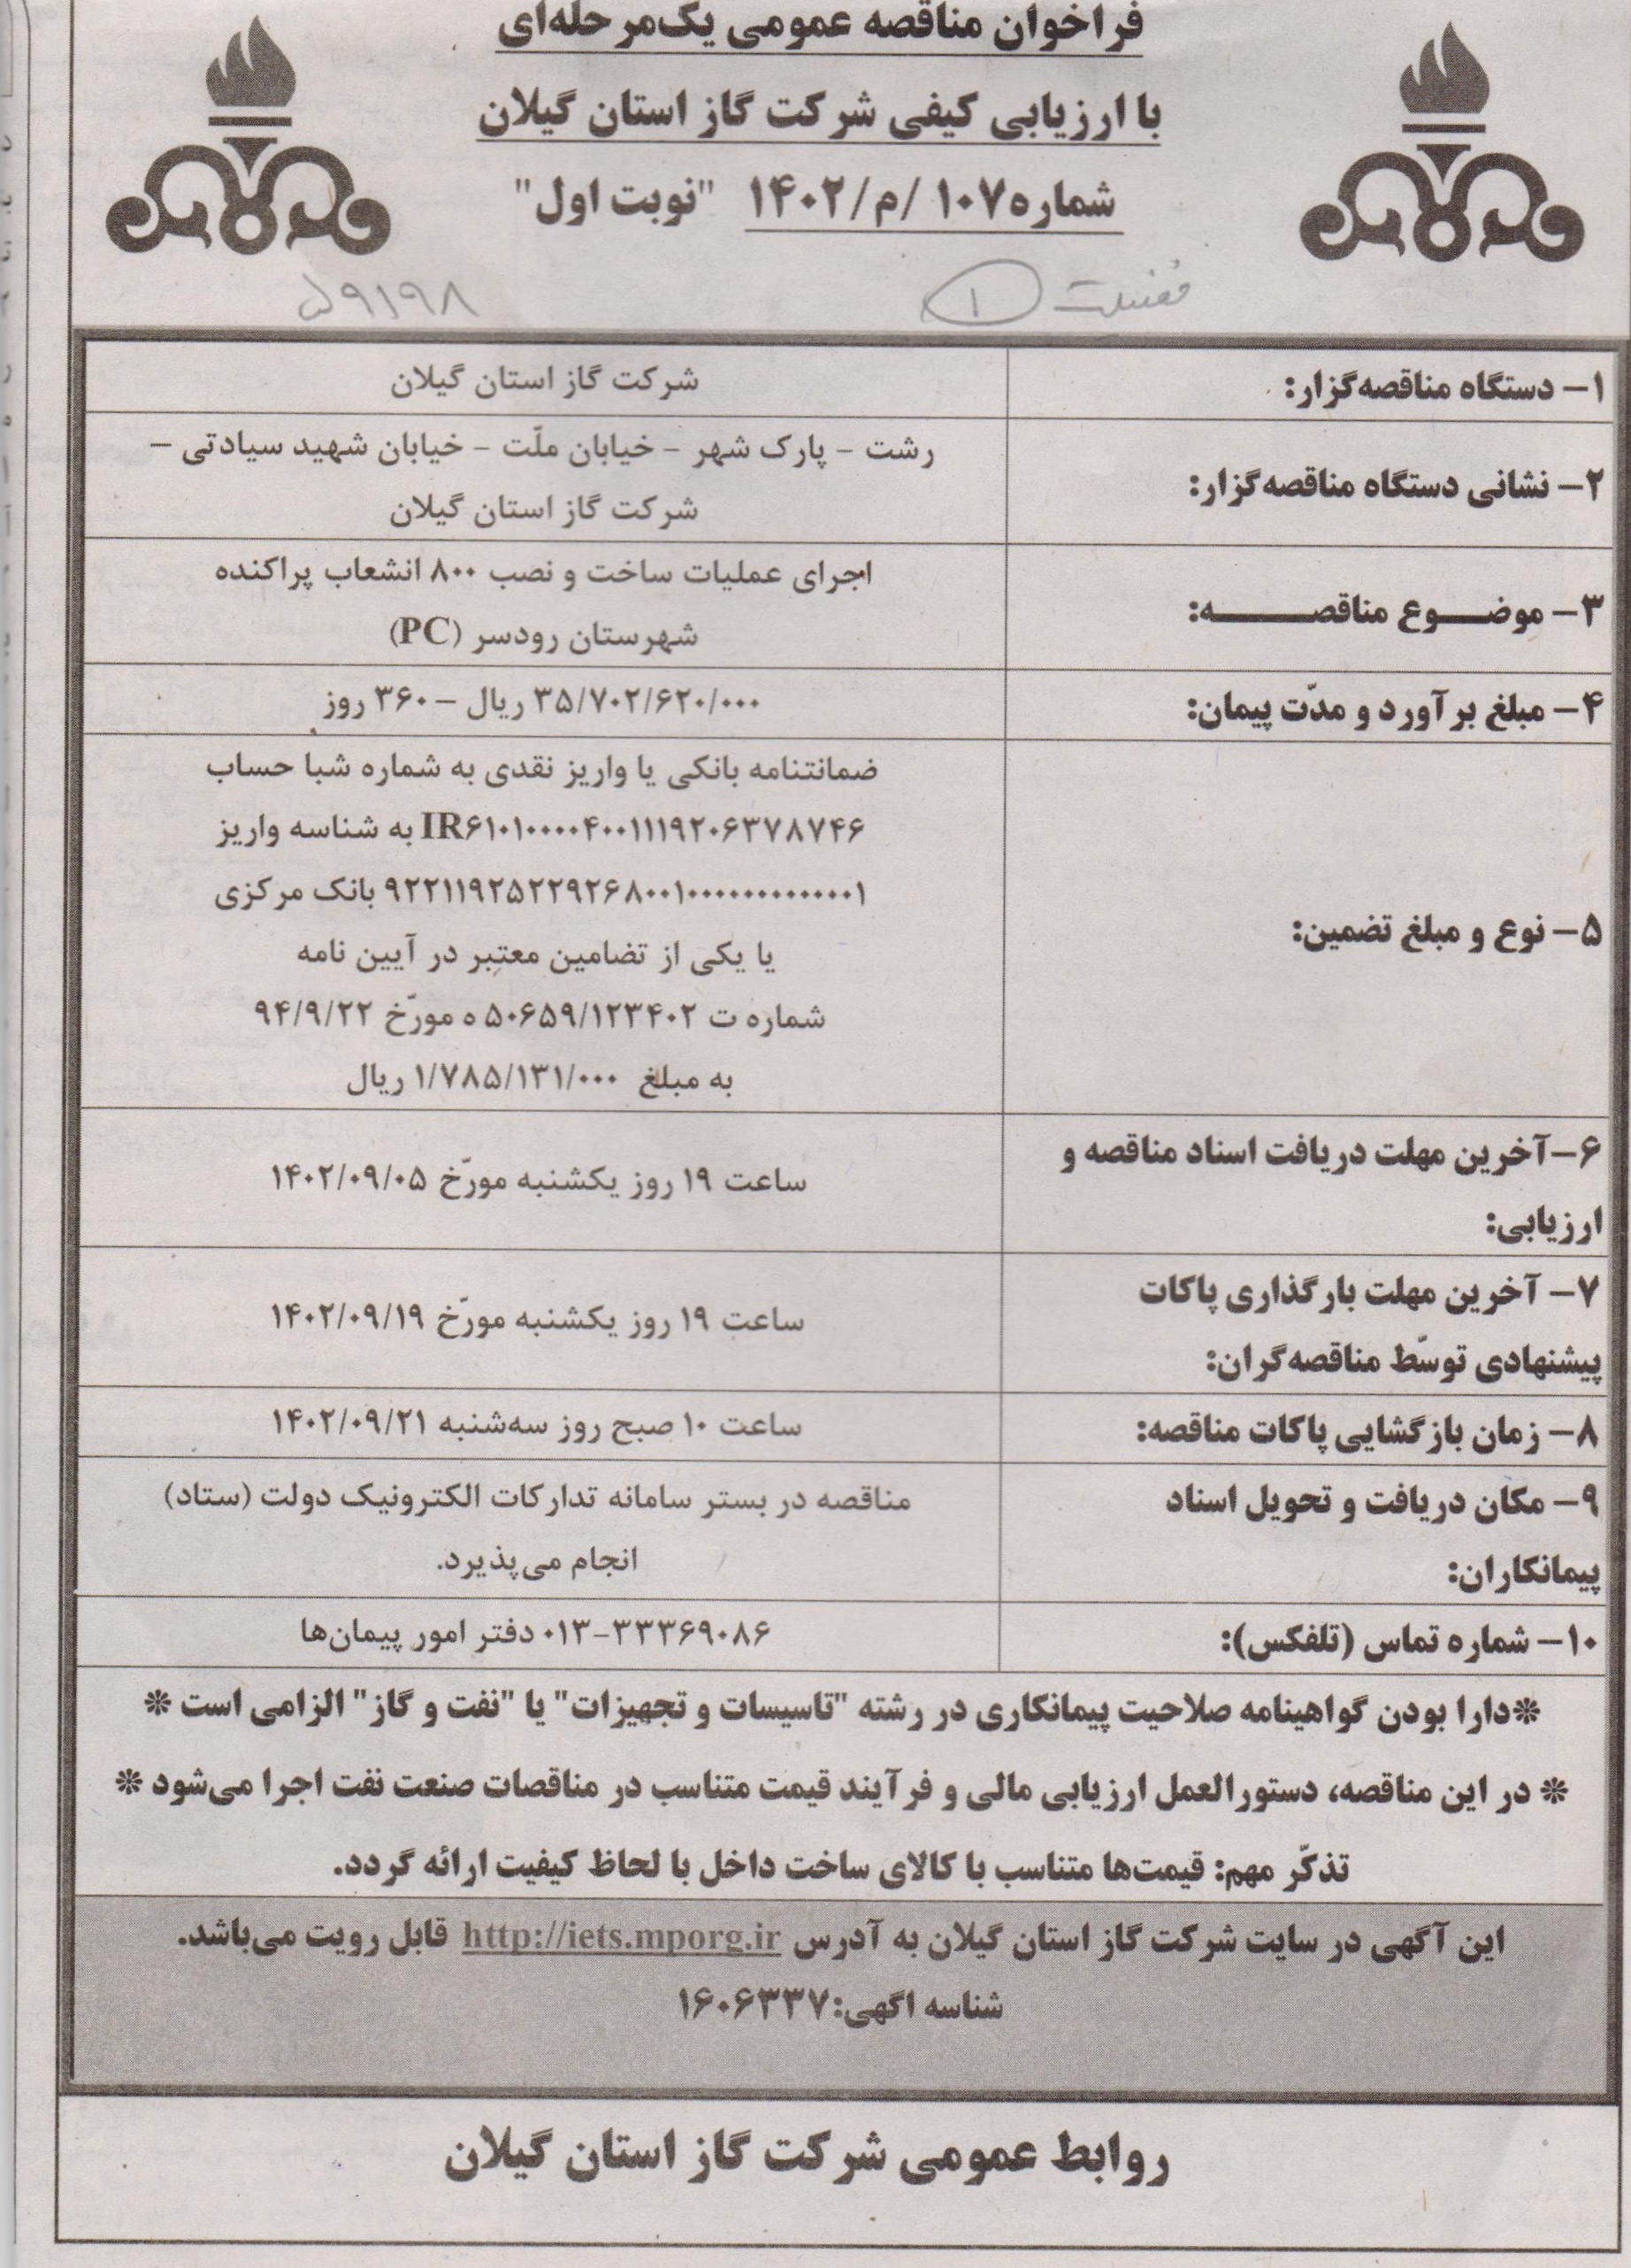 فراخوان مناقصه عمومی یک‌مرحله‌ای
با ارزیابی کیفی شرکت گاز استان گیلان
شماره ۱۰۷ /م/۱۴۰۲ "نوبت اول"
۵۹۱۹۸
۱
۱– دستگاه مناقصه‌گزار:
شرکت گاز استان گیلان
۲– نشانی دستگاه مناقصه‌گزار:
رشت – پارک شهر – خیابان ملّت – خیابان شهید سیادتی –
شرکت گاز استان گیلان
۳– موضـــوع مناقصـــــــه:
اجرای عملیات ساخت و نصب ۸۰۰ انشعاب پراکنده
شهرستان رودسر (PC)
۴– مبلغ برآورد و مدّت پیمان:
۳۵/۷۰۲/۶۲۰/۰۰۰ ریال – ۳۶۰ روز
۵– نوع و مبلغ تضمین:
ضمانتنامه بانکی یا واریز نقدی به شماره شبا حساب
IR۶۱۰۱۰۰۰۰۴۰۰۱۱۱۹۲۰۶۳۷۸۷۴۶ به شناسه واریز
بانک مرکزی
یا یکی از تضامین معتبر در آیین نامه
شماره ت ۵۰۶۵۹/۱۲۳۴۰۲ ه مورّخ ۹۴/۹/۲۲
به مبلغ ۱/۷۸۵/۱۳۱/۰۰۰ ریال
۶–آخرین مهلت دریافت اسناد مناقصه و
ارزیابی:
ساعت ۱۹ روز یکشنبه مورّخ ۱۴۰۲/۰۹/۰۵
۷– آخرین مهلت بارگذاری پاکات
پیشنهادی توسّط مناقصه‌گران:
ساعت ۱۹ روز یکشنبه مورّخ ۱۴۰۲/۰۹/۱۹
۸– زمان بازگشایی پاکات مناقصه:
ساعت ۱۰ صبح روز سه‌شنبه ۱۴۰۲/۰۹/۲۱
۹– مکان دریافت و تحویل اسناد
پیمانکاران:
مناقصه در بستر سامانه تدارکات الکترونیک دولت (ستاد)
انجام می‌پذیرد.
۱۰– شماره تماس (تلفکس):
۰۱۳-۳۳۳۶۹۰۸۶ دفتر امور پیمان‌ها
❊دارا بودن گواهینامه صلاحیت پیمانکاری در رشته "تاسیسات و تجهیزات" یا "نفت و گاز" الزامی است ❊
❊ در این مناقصه، دستورالعمل ارزیابی مالی و فرآیند قیمت متناسب در مناقصات صنعت نفت اجرا می‌شود ❊
تذکّر مهم: قیمت‌ها متناسب با کالای ساخت داخل با لحاظ کیفیت ارائه گردد.
این آگهی در سایت شرکت گاز استان گیلان به آدرس http://iets.mporg.ir قابل رویت می‌باشد.
شناسه اگهی:۱۶۰۶۳۳۷
روابط عمومی شرکت گاز استان گیلان